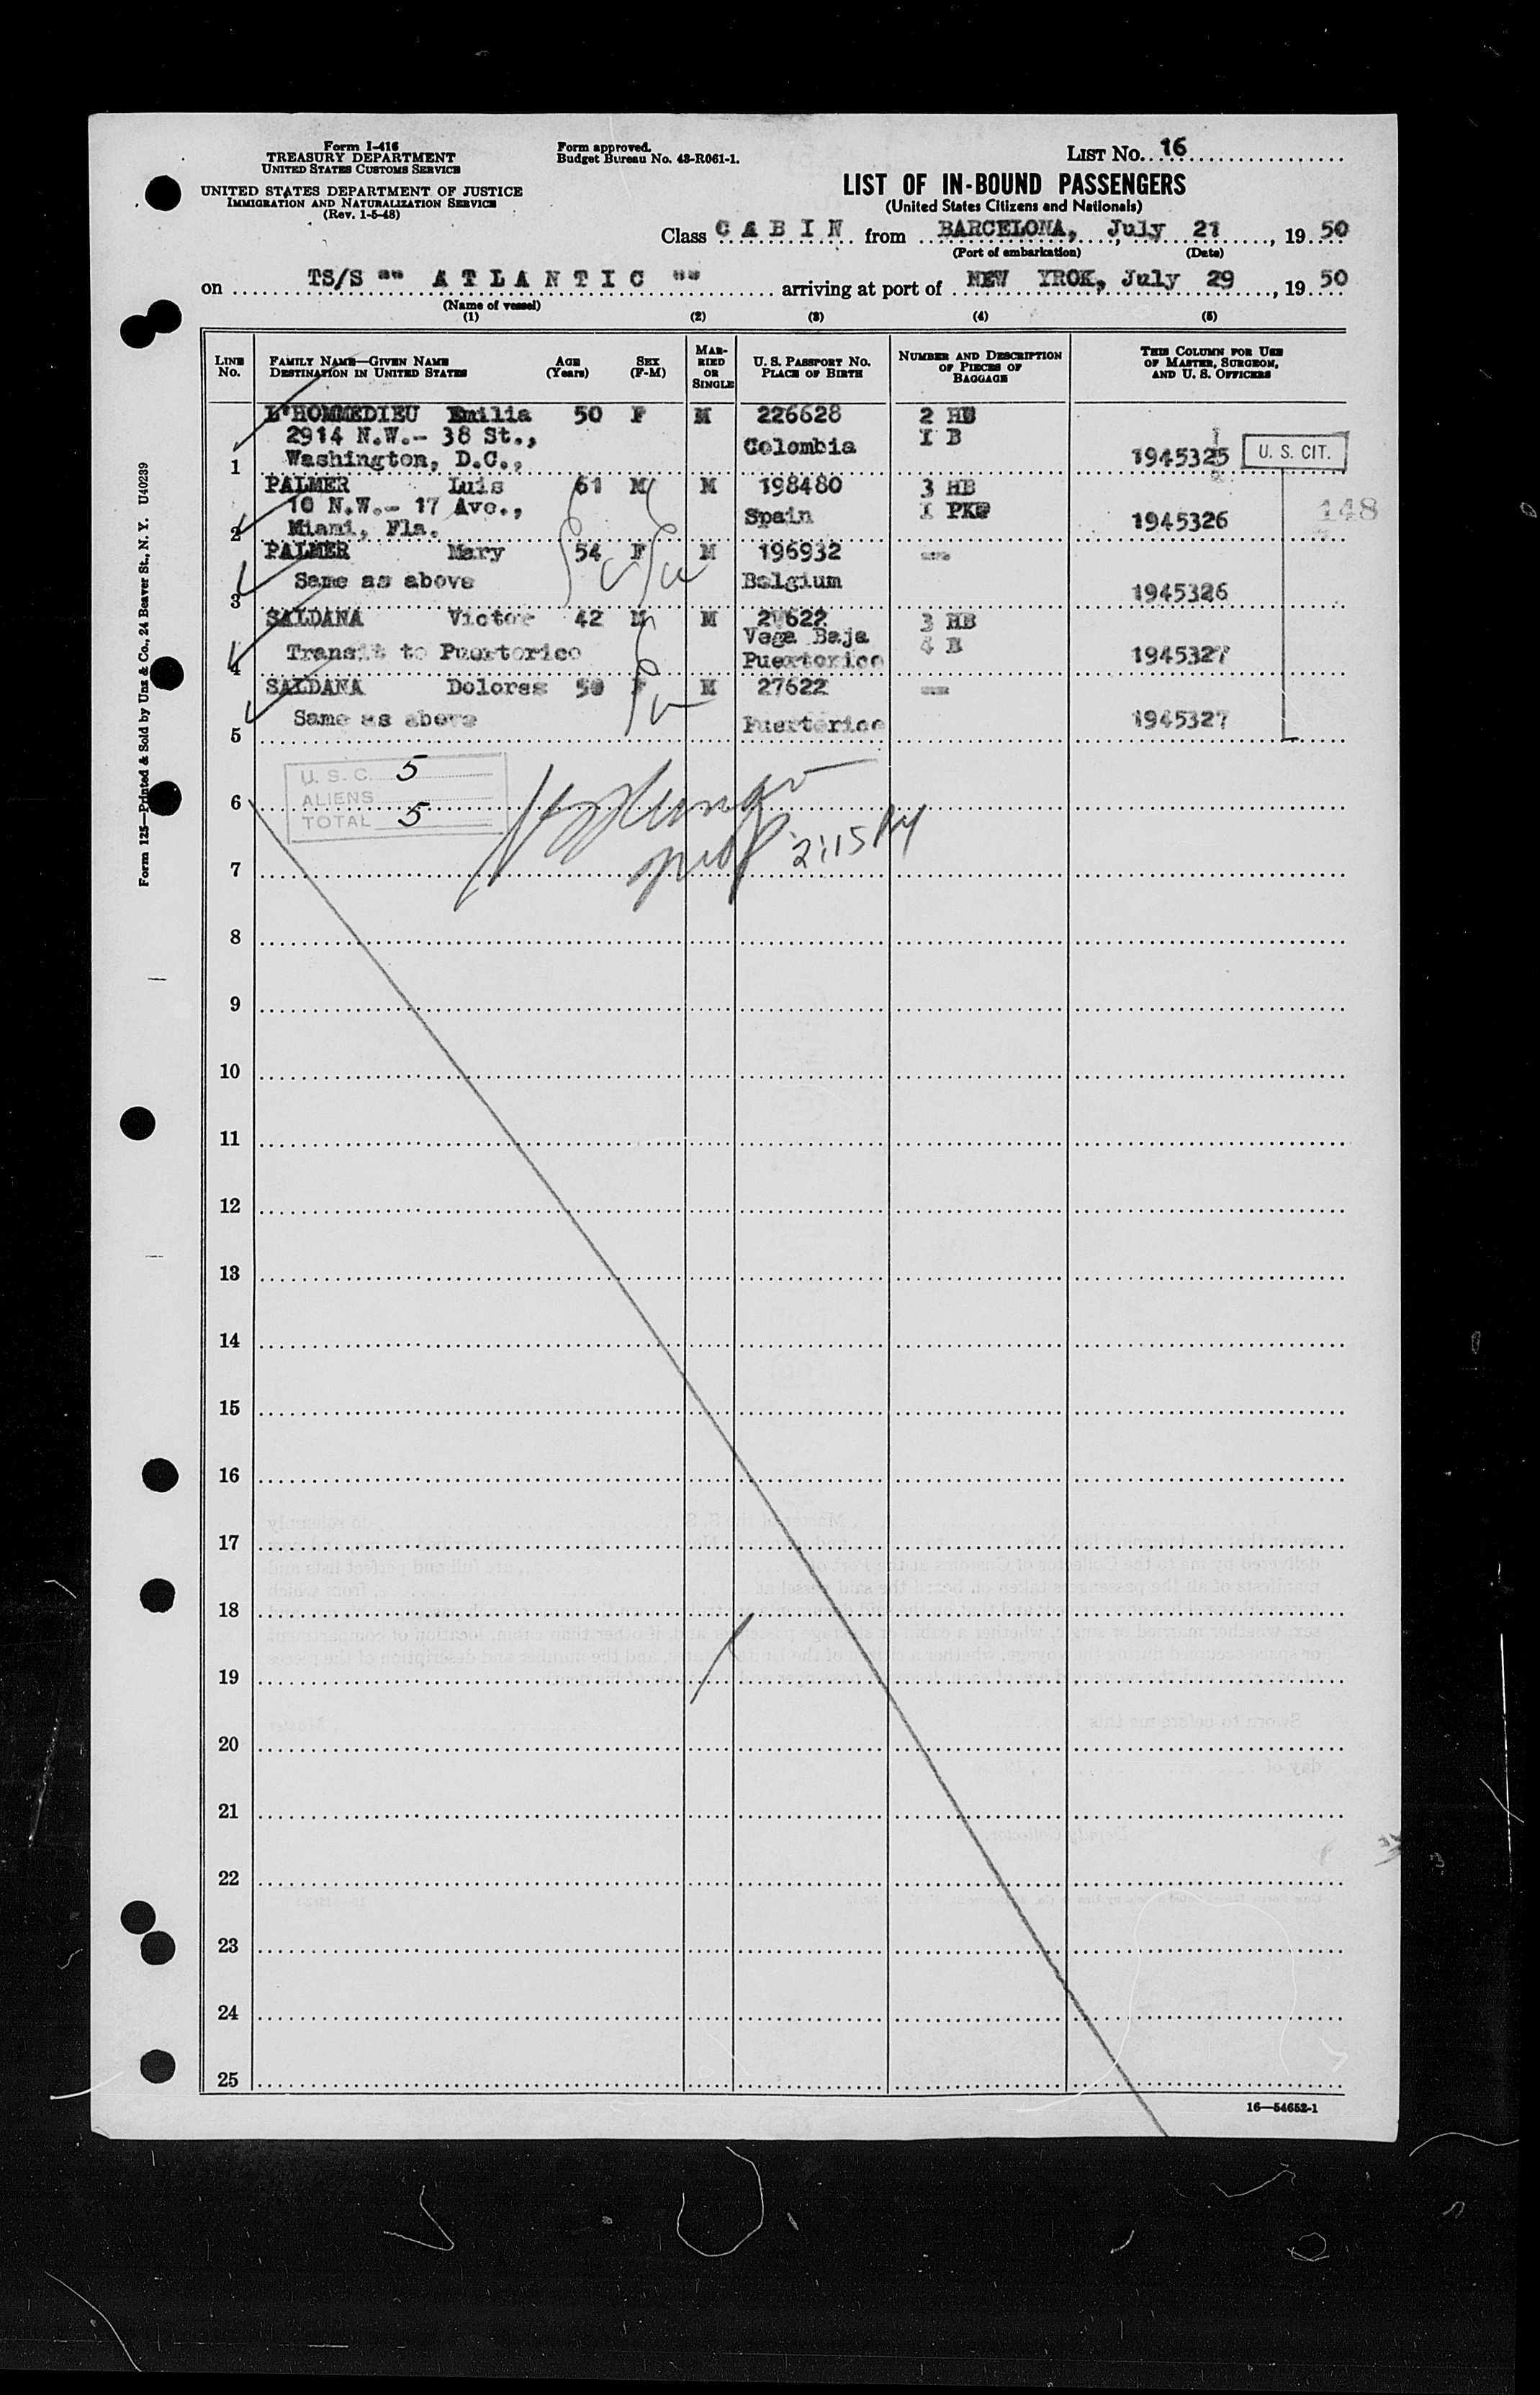 Form I-416
TREASURY DEPARTMENT
UNITED STATES CUSTOMS SERVICE
UNITED STATES DEPARTMENT OF JUSTICE
IMMIGRATION AND NATURALIZATION SERVICE
(Rev. 1-5-48)
Form approved.
Budget Bureau No. 43-R061-1.
LIST NO. 16
LIST OF IN-BOUND PASSENGERS
(United States Citizens and Nationals)
Class C A B I N from BARCELONA, July 21, 19 50
(Port of embarkation) (Date)
on TS/S "" A T L A N T I C "" arriving at port of NEW YROK, July 29, 19 50
(Name of vessel)
(1) (2) (3) (4) (5)
LINE NO.
FAMILY NAME—GIVEN NAME
DESTINATION IN UNITED STATES
AGE (Years)
SEX (F-M)
MARRIED OR SINGLE
U. S. PASSPORT NO.
PLACE OF BIRTH
NUMBER AND DESCRIPTION OF PIECES OF BAGGAGE
THIS COLUMN FOR USE OF MASTER, SURGEON, AND U. S. OFFICERS
L'HOMMEDIEU Emilia 50 F M 226628 2 HB
2914 N.W.- 38 St., Colombia I B
1 Washington, D.C., 1945325 U. S. CIT.
PALMER Luis 61 M M 198480 3 HB
10 N.W.- 17 Ave., Spain I PKG 148
2 Miami, Fla. 1945326
PALMER Mary 54 F M 196932 ---
Same as above Belgium
3 1945326
SALDANA Victor 42 M M 27622 3 HB
Vega Baja 4 B
4 Transit to Puertorico Puertorico 1945327
SALDANA Dolores 50 F M 27622 ---
Same as above Puertorico 1945327
5
U. S. C. 5
ALIENS
TOTAL 5
2:15 PM
6
7
8
9
10
11
12
13
14
15
16
17
18
19
20
21
22
23
24
25
16—54652-1
Form 125—Printed & Sold by Unz & Co., 24 Beaver St., N. Y. U40239